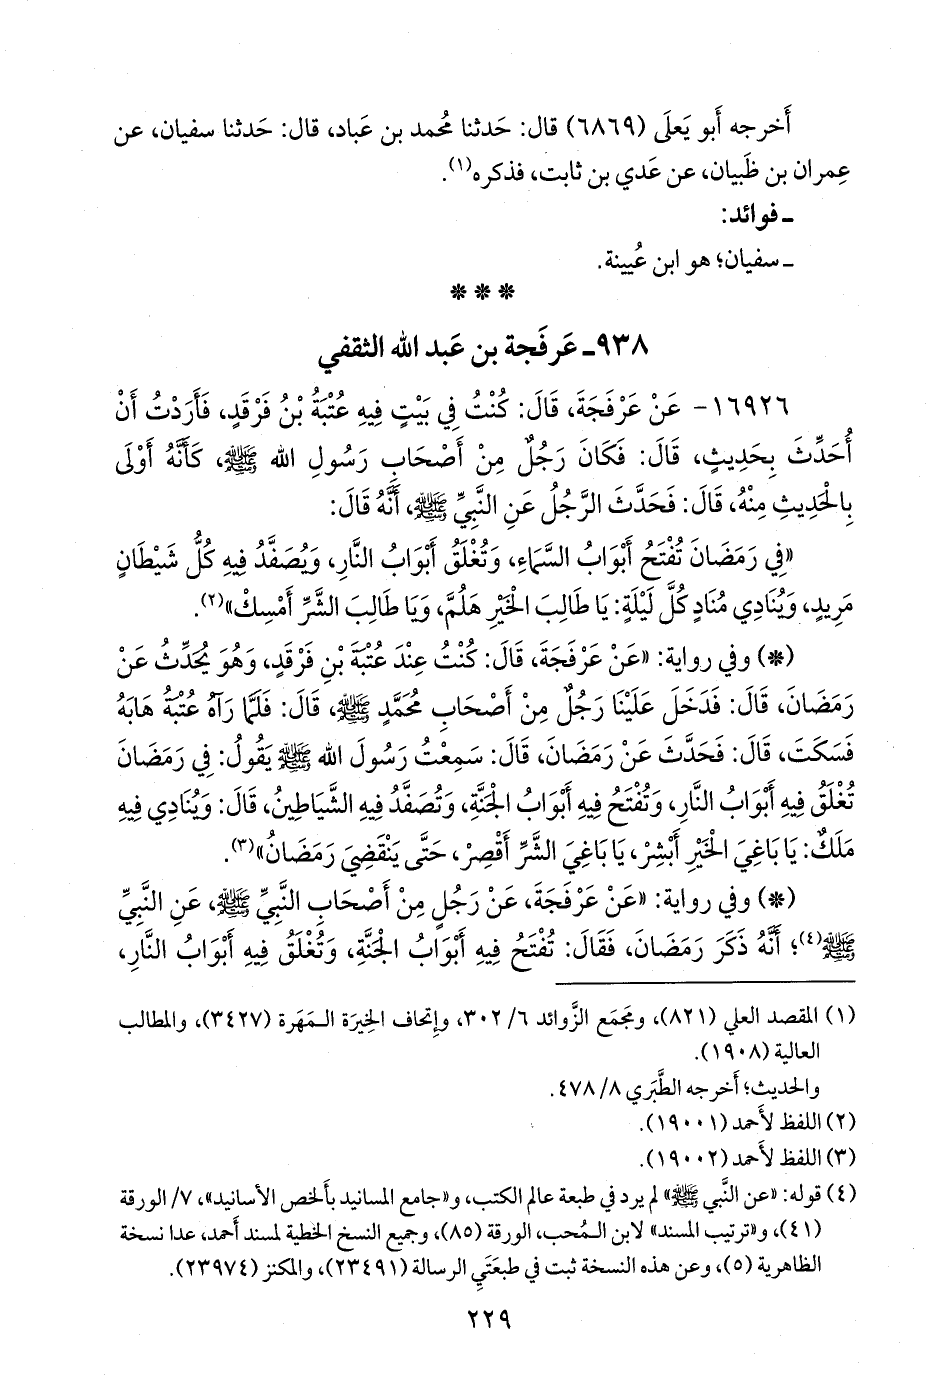 أَخرجه أَبو يَعلَى (٦٨٦٩) قال: حَدثنا مُحمد بن عَباد، قال: حَدثنا سفيان، عن
عِمران بن ظَبيان، عن عَدي بن ثابت، فذكره(١).
ـ فوائد:
ـ سفيان؛ هو ابن عُيينة.
* * *
٩٣٨ـ عَرفَجة بن عَبد الله الثقفي
١٦٩٢٦- عَنْ عَرْفَجَةَ، قَالَ: كُنْتُ فِي بَيْتٍ فِيهِ عُتْبَةُ بْنُ فَرْقَدٍ، فَأَرَدْتُ أَنْ
أُحَدِّثَ بِحَدِيثٍ، قَالَ: فَكَانَ رَجُلٌ مِنْ أَصْحَابِ رَسُولِ الله ﷺ، كَأَنَّهُ أَوْلَى
بِالْحَدِيثِ مِنْهُ، قَالَ: فَحَدَّثَ الرَّجُلُ عَنِ النَّبِيِّ ﷺ، أَنَّهُ قَالَ:
«فِي رَمَضَانَ تُفْتَحُ أَبْوَابُ السَّمَاءِ، وَتُغْلَقُ أَبْوَابُ النَّارِ، وَيُصَفَّدُ فِيهِ كُلُّ شَيْطَانٍ
مَرِيدٍ، وَيُنَادِي مُنَادٍ كُلَّ لَيْلَةٍ: يَا طَالِبَ الْخَيْرِ هَلُمَّ، وَيَا طَالِبَ الشَّرِّ أَمْسِكْ»(٢).
(*) وفي رواية: «عَنْ عَرْفَجَةَ، قَالَ: كُنْتُ عِنْدَ عُتْبَةَ بْنِ فَرْقَدٍ، وَهُوَ يُحَدِّثُ عَنْ
رَمَضَانَ، قَالَ: فَدَخَلَ عَلَيْنَا رَجُلٌ مِنْ أَصْحَابِ مُحَمَّدٍ ﷺ، قَالَ: فَلَمَّا رَآهُ عُتْبَةُ هَابَهُ
فَسَكَتَ، قَالَ: فَحَدَّثَ عَنْ رَمَضَانَ، قَالَ: سَمِعْتُ رَسُولَ الله ﷺ يَقُولُ: فِي رَمَضَانَ
تُغْلَقُ فِيهِ أَبْوَابُ النَّارِ، وَتُفْتَحُ فِيهِ أَبْوَابُ الْجَنَّةِ، وَتُصَفَّدُ فِيهِ الشَّيَاطِينُ، قَالَ: وَيُنَادِي فِيهِ
مَلَكٌ: يَا بَاغِيَ الْخَيْرِ أَبْشِرْ، يَا بَاغِيَ الشَّرِّ أَقْصِرْ، حَتَّى يَنْقَضِيَ رَمَضَانُ»(٣).
(*) وفي رواية: «عَنْ عَرْفَجَةَ، عَنْ رَجُلٍ مِنْ أَصْحَابِ النَّبِيِّ ﷺ، عَنِ النَّبِيِّ
ﷺ(٤)؛ أَنَّهُ ذَكَرَ رَمَضَانَ، فَقَالَ: تُفْتَحُ فِيهِ أَبْوَابُ الْجَنَّةِ، وَتُغْلَقُ فِيهِ أَبْوَابُ النَّارِ،
(١) المقصد العلي (٨٢١)، ومَجمَع الزَّوائد ٦/ ٣٠٢، وإتحاف الخِيرَة الـمَهَرة (٣٤٢٧)، والمطالب
العالية (١٩٠٨).
والحديث؛ أَخرجه الطَّبَري ٨/ ٤٧٨.
(٢) اللفظ لأَحمد (١٩٠٠١).
(٣) اللفظ لأَحمد (١٩٠٠٢).
(٤) قوله: «عن النَّبي ﷺ» لم يرد في طبعة عالم الكتب، و«جامع المسانيد بأَلخص الأسانيد»، ٧/ الورقة
(٤١)، و«ترتيب المسند» لابن الـمُحب، الورقة (٨٥)، وجميع النسخ الخطية لمسند أَحمد، عدا نسخة
الظاهرية (٥)، وعن هذه النسخة ثبت في طبعَتَي الرسالة (٢٣٤٩١)، والمكنز (٢٣٩٧٤).
٢٢٩